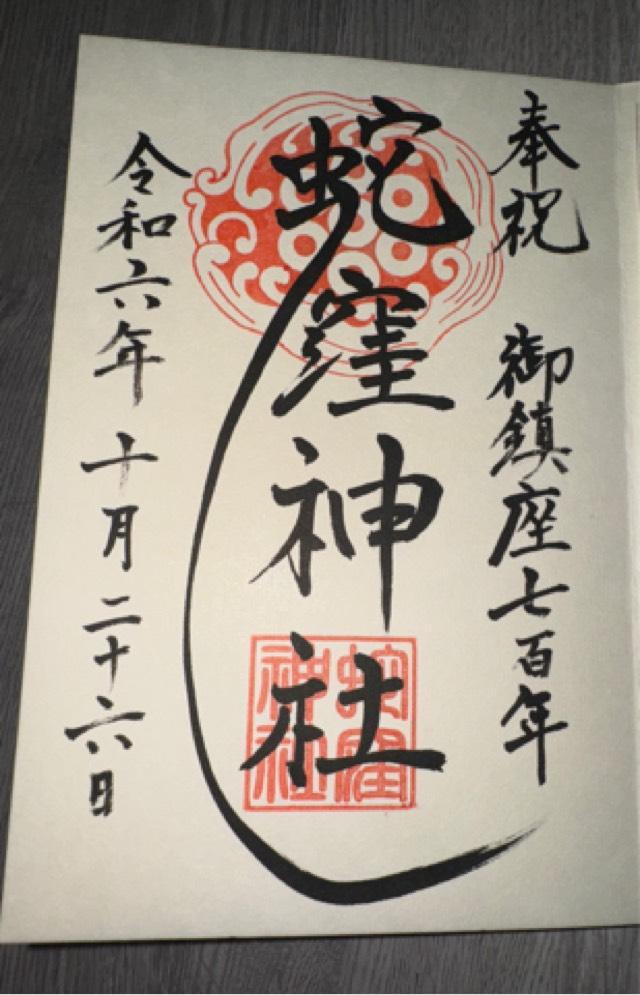 奉祝　御鎮座七百年
蛇窪神社
蛇窪
神社
令和六年十月二十六日